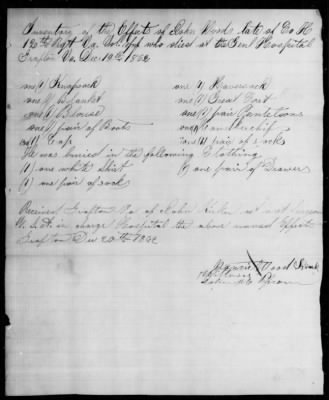 Inventory of the Effects of John Wood late of Co H
126th Regt Pa. Vol. who died at the Genl Hospital
Grafton Va. Dec 19th 1862
one (1) Knapsack one (1) Haversack
one (1) Blanket one (1) Great Coat
one (1) Blouse one (1) pair Pantaloons
one pair of Boots one
one (1) Cap one (1) pair of sock
He was buried in the following Clothing
(1) one white shirt (1) one pair of Drawers
(1) one pair of sock
Received Grafton Va. of John
U.S.A. in charge Hospital the above named Effects
Grafton Dec 20th 1862
Wood
Witness